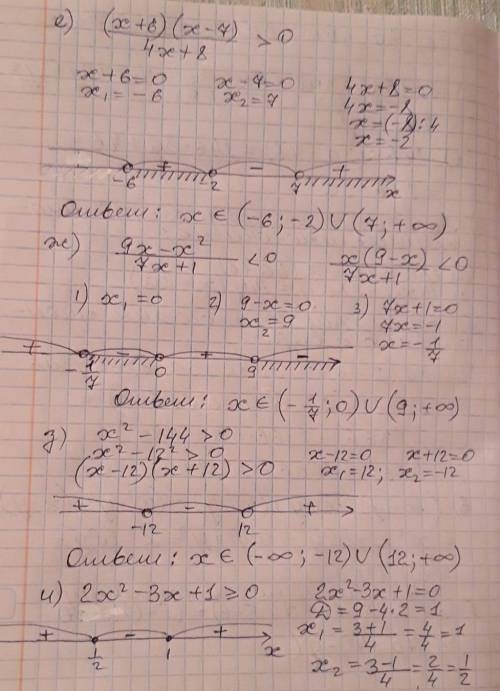 е) (x+8)(x-7) / 4x+8 > 0
x+6=0   x-7=0   4x+8=0
x₁=-6   x₂=7   4x=-8
x=(-8):4
x=-2
+ - +
-6 2 7 x
Ответ: x ∈ (-6; -2) ∪ (7; +∞)
ж) 9x-x² / 7x+1 < 0   x(9-x) / 7x+1 < 0
1) x₁=0   2) 9-x=0   3) 7x+1=0
x₂=9   7x=-1
x=-1/7
+ - + -
-1/7 0 9
Ответ: x ∈ (-1/7; 0) ∪ (9; +∞)
з) x²-144>0
x²-12²>0   x-12=0   x+12=0
(x-12)(x+12)>0   x₁=12; x₂=-12
+ - +
-12 12
Ответ: x ∈ (-∞; -12) ∪ (12; +∞)
и) 2x²-3x+1≥0   2x²-3x+1=0
Д=9-4·2=1
x₁=3+1/4=4/4=1
+ - +
1/2 1 x
x₂=3-1/4=2/4=1/2